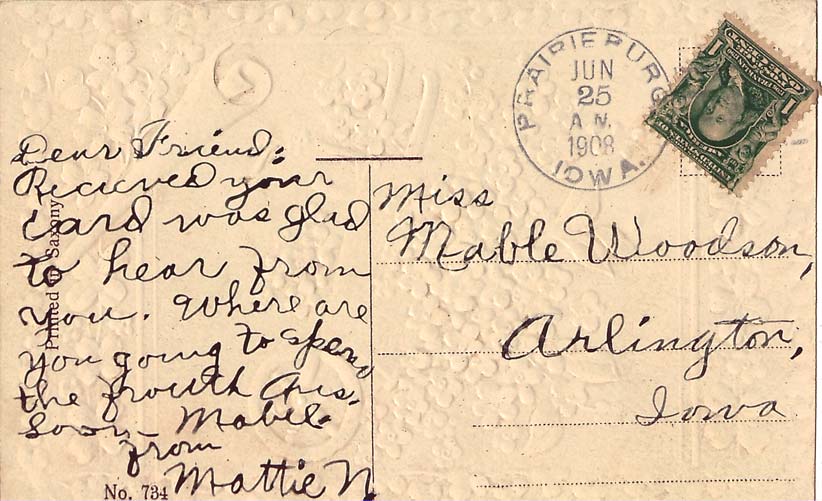 PRAIRIEBURG
JUN
25
1908
IOWA.
Dear Friend:
Recieved your
card was glad
to hear from
you. Where are
you going to spend
the fourth Ans.
soon - Mabel.
from
Mattie N
Miss
Mable Woodson,
Arlington,
Iowa
Printed in Saxony
No. 734